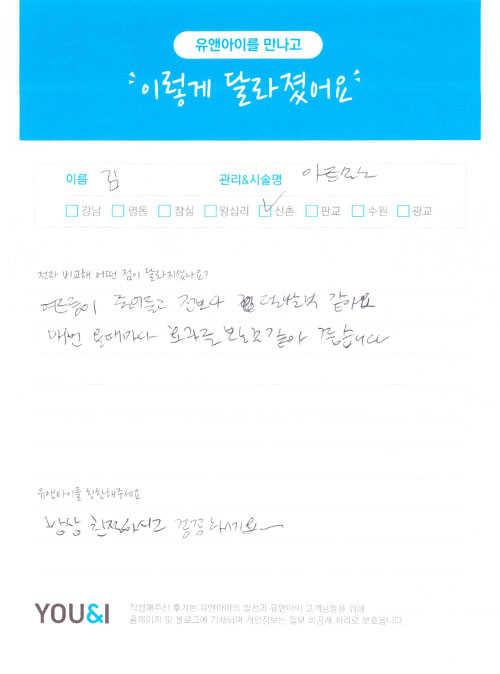 유앤아이를 만나고
이렇게 달라졌어요
이름 김 관리&시술명 아트모노
강남 명동 잠실 왕십리 신촌 판교 수원 광교
전과 비교해 어떤 점이 달라지셨나요?
여드름이 줄어들고 전보다 같아요
매번 올때마다 효과를 보는것 같아 좋습니다
유앤아이를 칭찬해주세요
항상 친절하시고 꼼꼼하세요~
YOU&I
작성해주신 후기는 유앤아이의 발전과 유앤아이 고객님들을 위해
홈페이지 및 블로그에 기재되며 개인정보는 일부 비공개 처리로 보호됩니다.